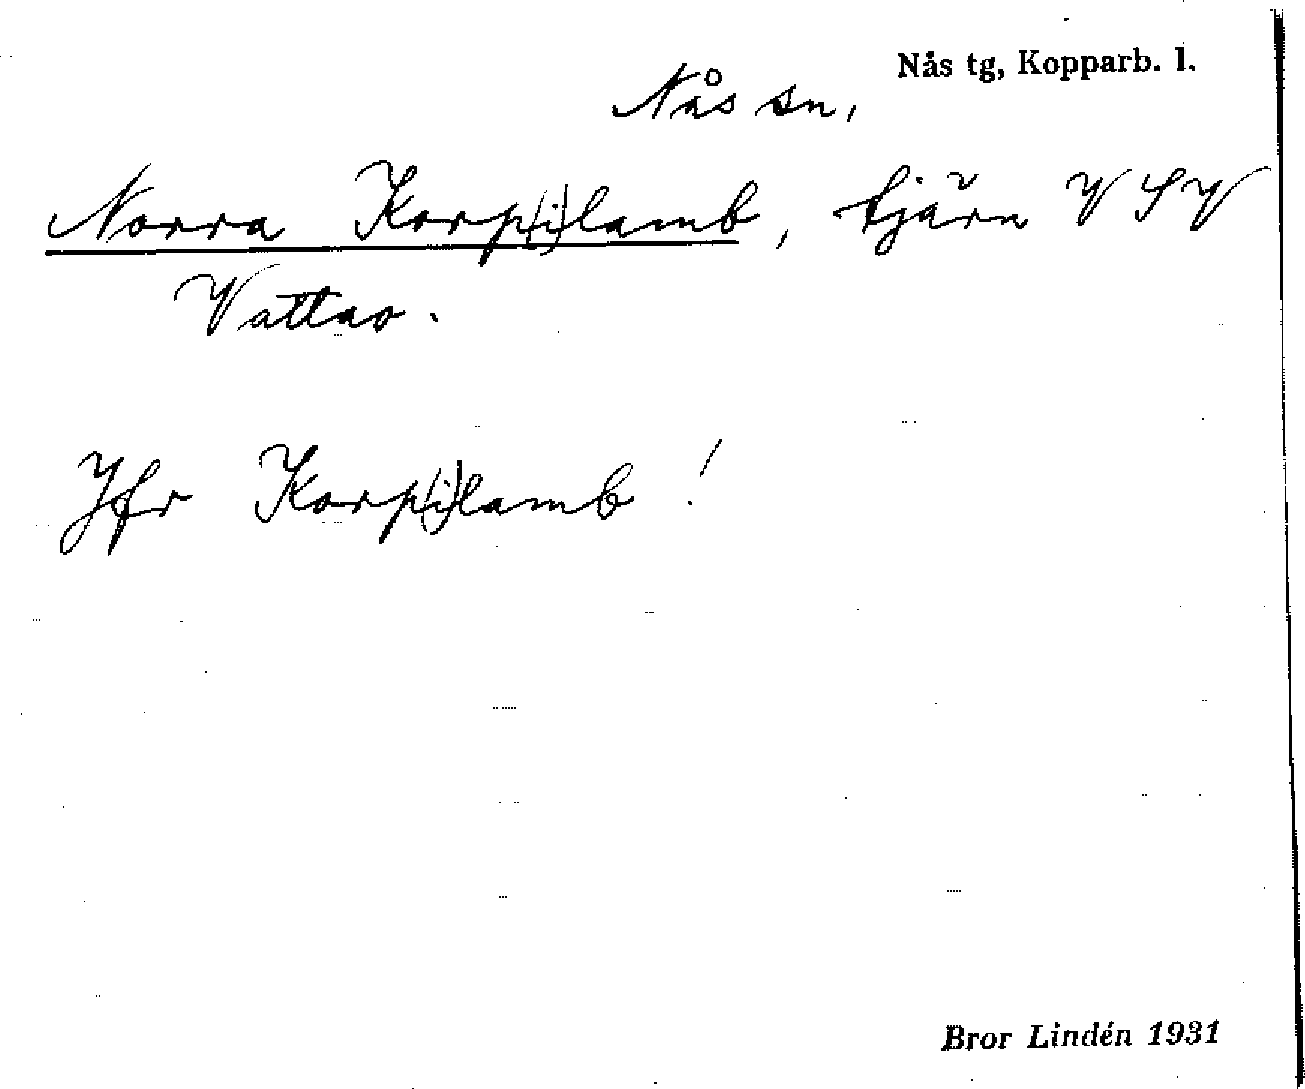 Nås tg, Kopparb. l.
Nås sn,
Norra Korp(i)lamb, tjärn V S V
Vattao.
Jfr Korp(i)lamb!
Bror Lindén 1931